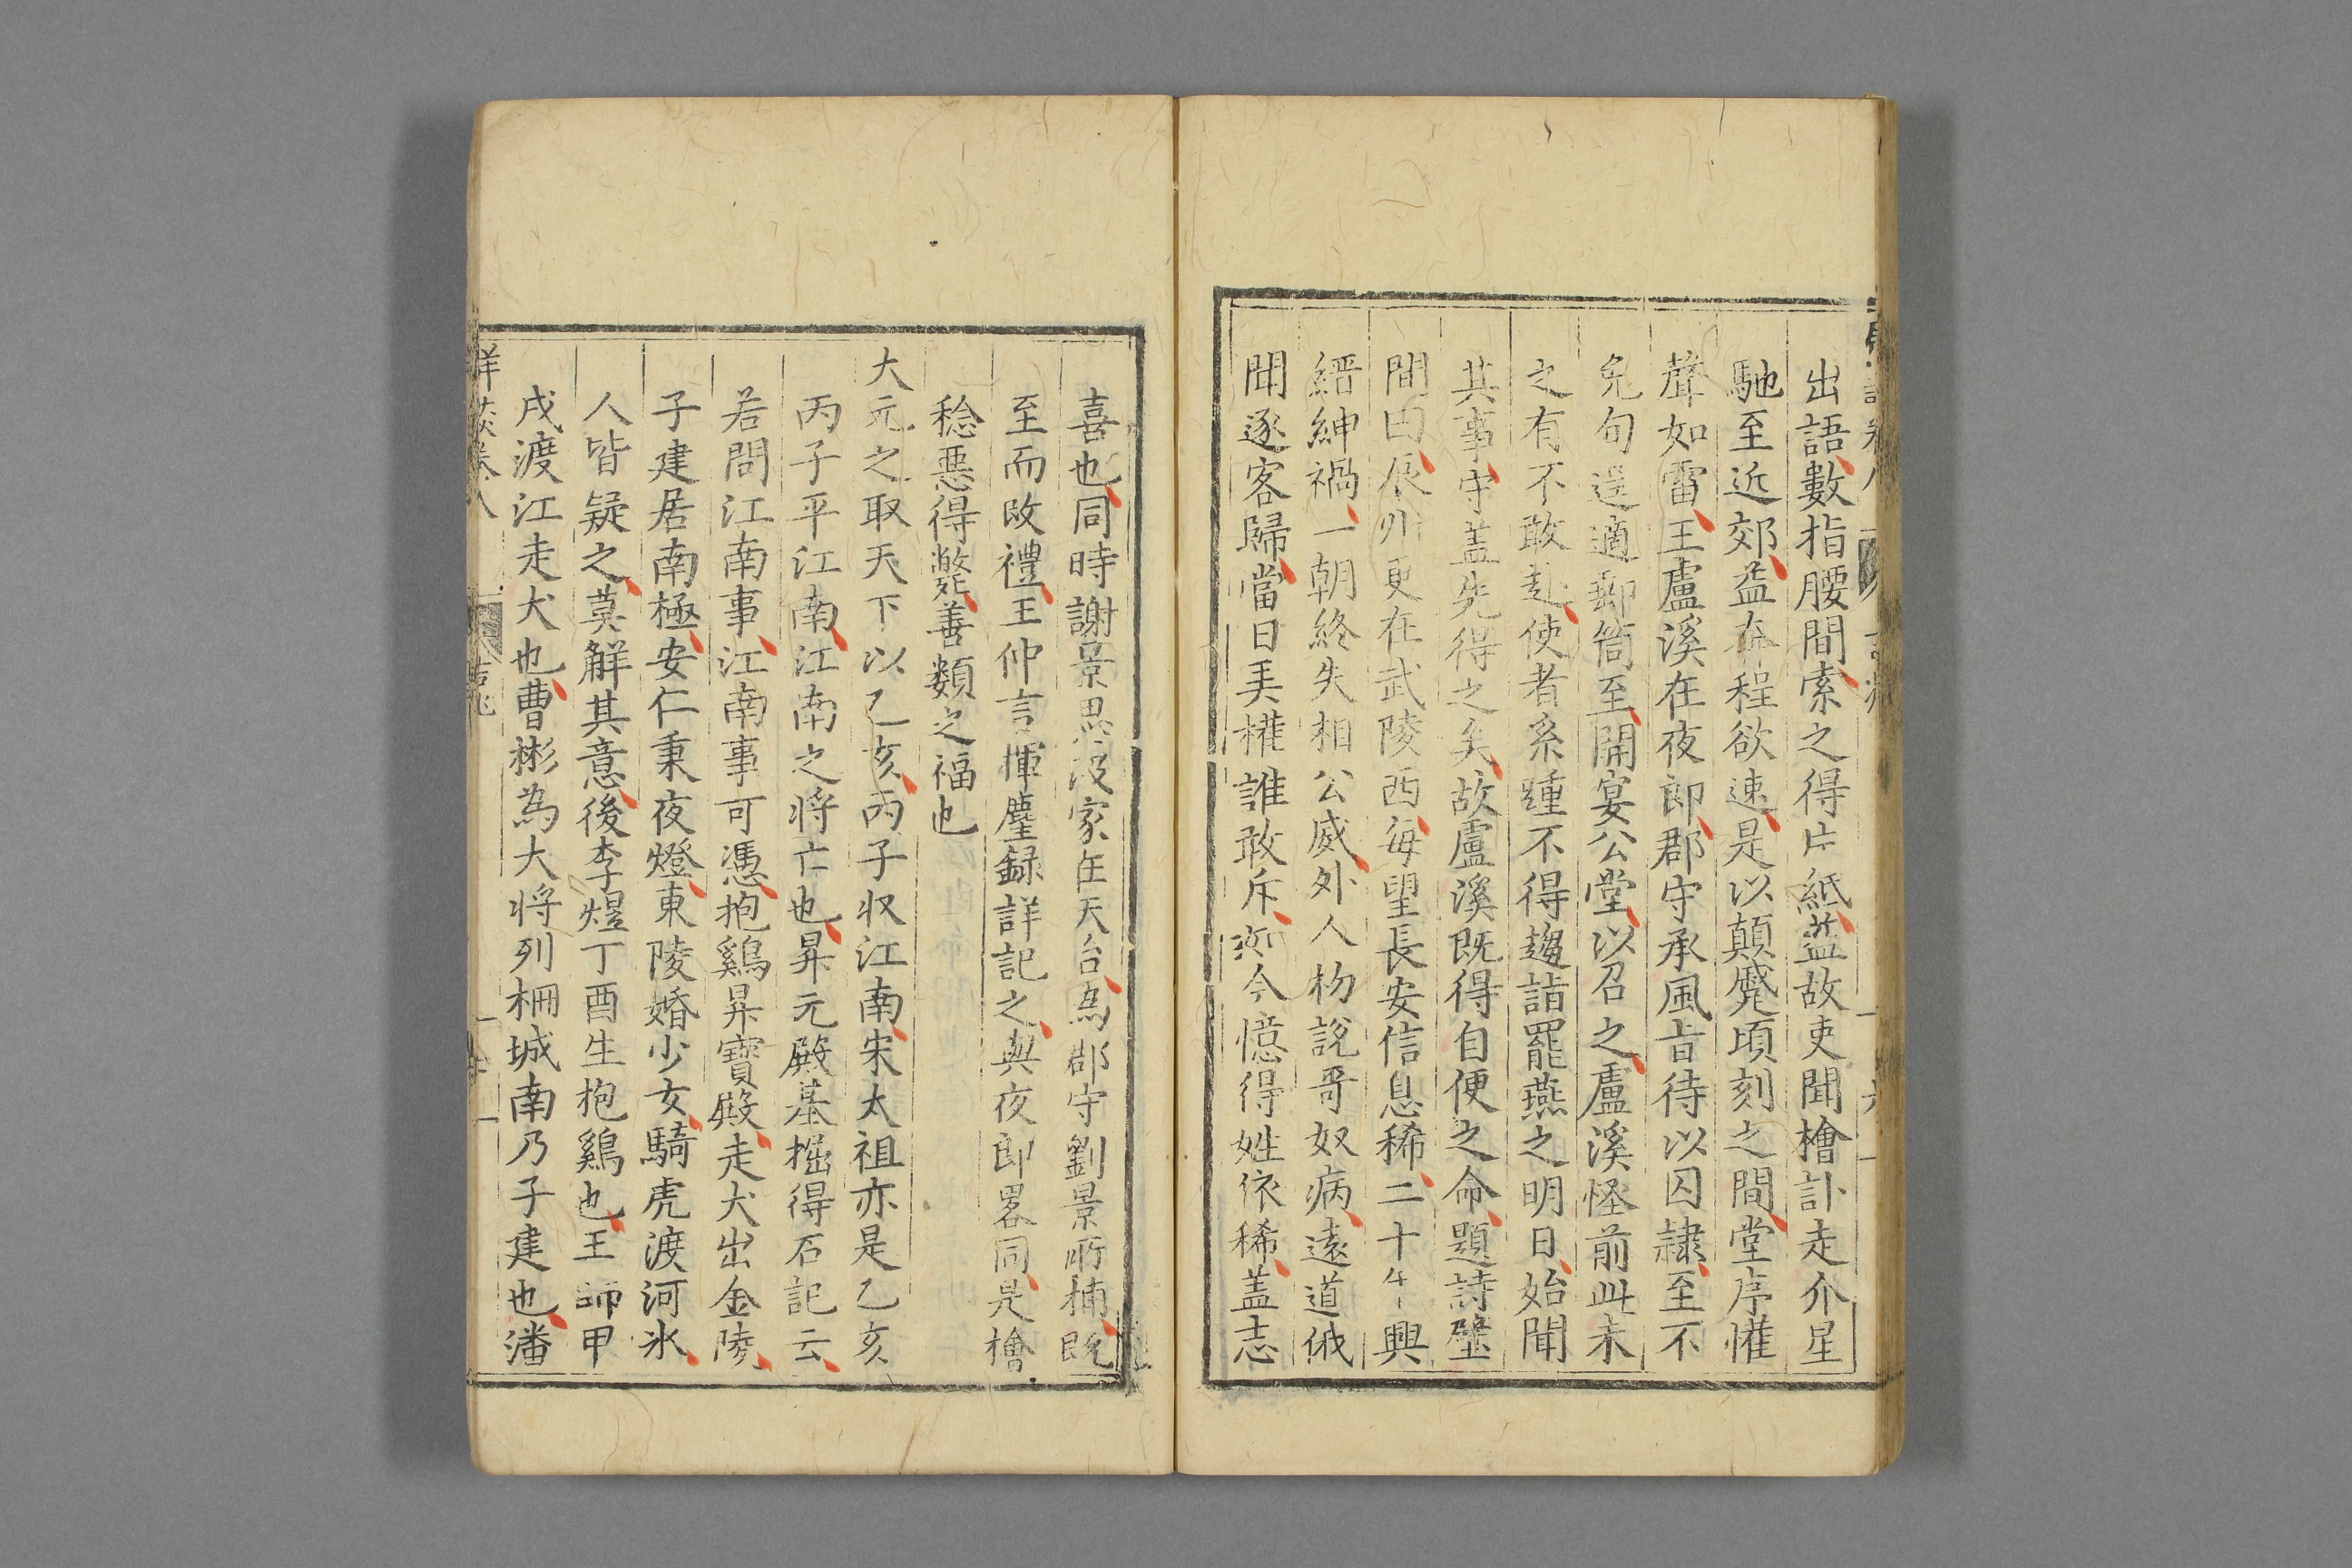 出語數指腰間索之得片紙盖故吏聞檜訃走介星
馳至近郊益奔程欲速是以顛躓頃刻之間堂序懽
聲如雷王盧溪在夜郎郡守承風旨待以囚隷至不
免旬逞適郵筒至開宴公堂以召之盧溪怪前此未
之有不敢赴使者系踵不得趨詣罷燕之明日始聞
其事守盖先得之矣故盧溪既得自便之命題詩壁
間曰辰州更在武陵西每望長安信息稀二十年興
縉紳禍一朝終失相公威外人枌說哥奴病遠道俄
聞逐客歸當日弄權誰敢斥如今憶得姓依稀盖志
喜也同時謝景思伋家在天台為郡守劉景所捕既
至而改禮王仲言揮麈録詳記之與夜郎畧同是檜
稔惡得斃善類之福也
大元之取天下以乙亥丙子収江南宋太祖亦是乙亥
丙子平江南江南之将亡也昇元殿基掘得石記云
若問江南事江南事可憑抱鷄昇寶殿走犬出金陵
子建居南極安仁秉夜燈東陵婚少女騎虎渡河氷
人皆疑之莫解其意後李煜丁酉生抱鷄也王師甲
戌渡江走犬也曹彬為大将列柵城南乃子建也潘
詳莢卷八